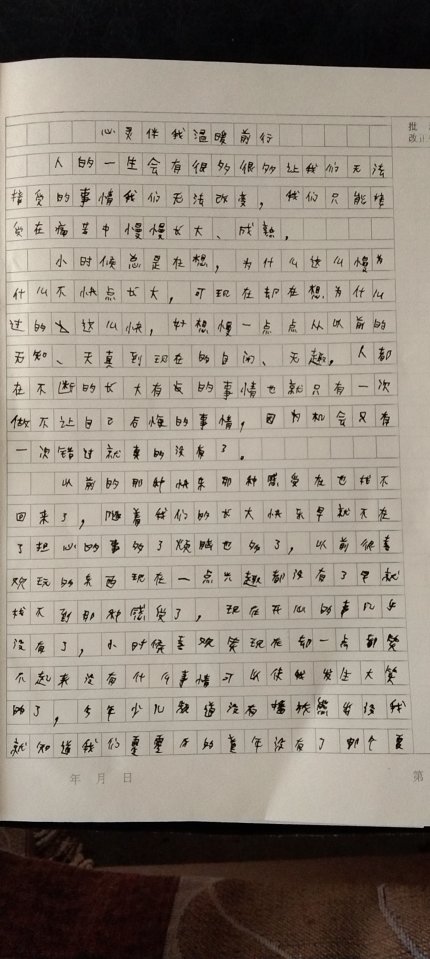 批
改正
心灵伴我温暖前行
人的一生会有很多很多让我们无法
接受的事情我们无法改变，我们只能接
受在痛苦中慢慢长大、成熟，
小时候总是在想，为什么这么慢为
什么不快点长大，可现在却在想为什么
过的这么快，好想慢一点点从以前的
无知、天真到现在的自闭、无趣，人都
在不断的长大有的事情也就只有一次
做不让自己后悔的事情，因为机会只有
一次错过就真的没有了。
以前的那种快乐那种感受在也找不
回来了，随着我们的长大快乐早就不在
了担心的事多了烦恼也多了，以前很喜
欢玩的东西现在一点兴趣都没有了早就
找不到那种感受了，现在开心的事几乎
没有了，小时候喜欢笑现在却一点都笑
不起来没有什么事情可以使我发生大笑
的了，今年少儿频道没有播我
就知道我们的童年没有了那个夏
年 月 日
第